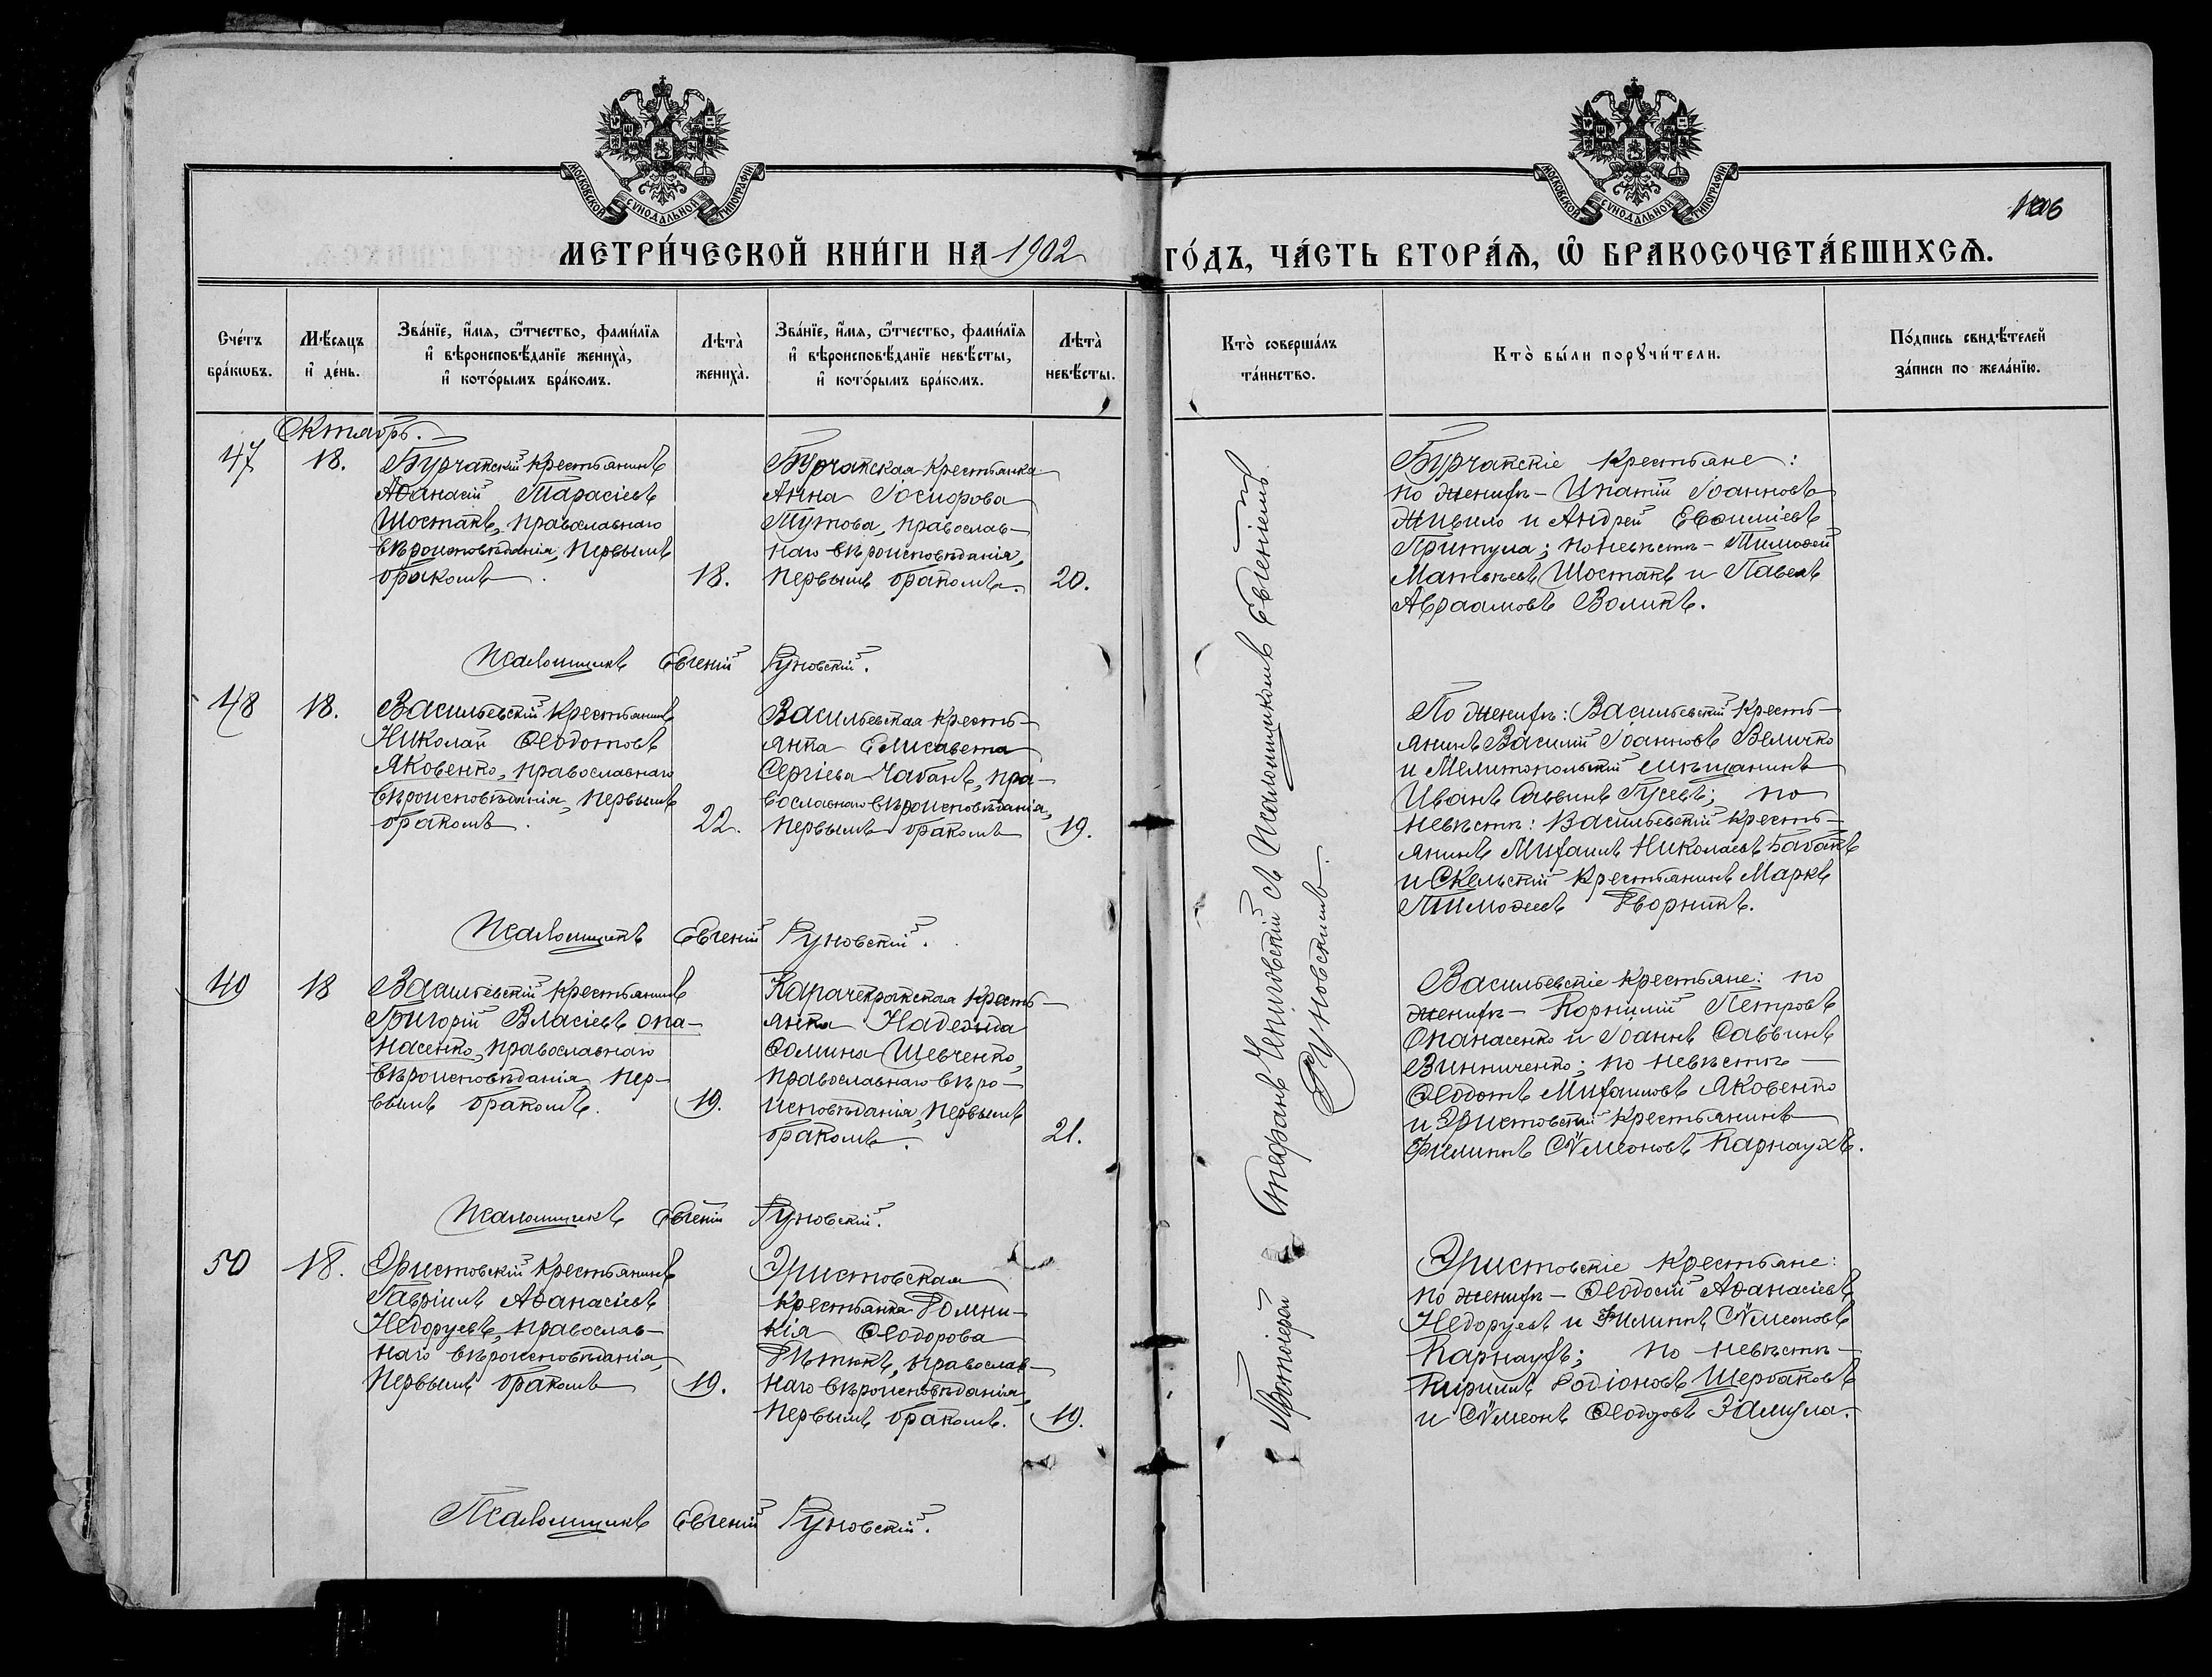 МОСКОВСКОЙ СѴНОДАЛЬНОЙ ТИПОГРАФІИ
МОСКОВСКОЙ СѴНОДАЛЬНОЙ ТИПОГРАФІИ
МЕТРИ́ЧЕСКОЙ КНИ́ГИ НА 1902
ГО́ДЪ, ЧА́СТЬ ВТОРА́Ѧ, Ѡ҆ БРАКОСОЧЕТА́ВШИХСѦ.
Сче́тъ
бра́кѡвъ.
Мѣ́сѧцъ
и҆ де́нь.
Зва́нїе, и҆́мѧ, ѻ҆́тчество, фами́лїѧ
и҆ вѣроисповѣ́данїе жениха̀,
и҆ кото́рымъ бра́комъ.
Лѣта̀
жениха̀.
Зва́нїе, и҆́мѧ, ѻ҆́тчество, фами́лїѧ
и҆ вѣроисповѣ́данїе невѣ́сты,
и҆ кото́рымъ бра́комъ.
Лѣта̀
невѣ́сты.
Кто̀ соверша́лъ
та́инство.
Кто̀ бы́ли порꙋчи́тели.
По́дпись свидѣ́телей
за́писи по жела́нїю.
Октябрь.
47
18.
Бурчатскій крестьянинъ
Аѳанасій Тарасіевъ
Шостакъ, православнаго
вѣроисповѣданія, первымъ
бракомъ.
18.
Бурчатская крестьянка
Анна
Тутова, православ-
наго вѣроисповѣданія,
первымъ бракомъ.
20.
Бурчатскіе крестьяне:
по женихѣ – Ипатій Іоанновъ
Живило и Андрей Евѳиміевъ
Притула; по невѣстѣ – Тимоѳей
Матѳеевъ Шостакъ и Павелъ
Авраамовъ Воликъ.
Псаломщикъ Евгеній Руновскій.
48
18.
Васильевскій крестьянинъ
Николай Ѳеодотовъ
Яковенко, православнаго
вѣроисповѣданія, первымъ
бракомъ.
22.
Васильевская кресть-
янка Елисавета
Сергіева Чабанъ, пра-
вославнаго вѣроисповѣданія,
первымъ бракомъ
19.
По женихѣ: Васильевскій кресть-
янинъ Василій Іоанновъ Величко
и Мелитопольскій мѣщанинъ
Иванъ Саввинъ Гусевъ; по
невѣстѣ: Васильевскій кресть-
янинъ Михаилъ Николаевъ
и Скельскій крестьянинъ Маркъ
Тимоѳеевъ Дворникъ.
Псаломщикъ Евгеній Руновскій.
49
18
Васильевскій крестьянинъ
Григорій Власіевъ Опа-
насенко, православнаго
вѣроисповѣданія, пер-
вымъ бракомъ.
19.
Карачекракская кресть-
янка Надежда
Ѳомина Шевченко,
православнаго вѣро-
исповѣданія, первымъ
бракомъ.
21.
Васильевскіе крестьяне: по
женихѣ – Корнилій Петровъ
Опанасенко и Іоаннъ Саввинъ
Винниченко; по невѣстѣ –
Ѳеодотъ Михаиловъ Яковенко
и Эристовскій крестьянинъ
Филиппъ Сѵмеоновъ Карнаухъ.
Псаломщикъ Евгеній Руновскій.
50
18.
Эристовскій крестьянинъ
Гавріилъ Аѳанасіевъ
Недоруевъ, православ-
наго вѣроисповѣданія,
первымъ бракомъ
19.
Эристовская
крестьянка Домни-
кія Ѳеодорова
православ-
наго вѣроисповѣданія,
первымъ бракомъ.
19.
Эристовскіе крестьяне:
по женихѣ – Ѳеодосій Аѳанасіевъ
Недоруевъ и Филиппъ Сѵмеоновъ
Карнаухъ; по невѣстѣ –
Кириллъ Родіоновъ Щербаковъ
и Сѵмеонъ Замула.
Псаломщикъ Евгеній Руновскій.
Протоіерей Стефанъ съ псаломщикомъ Евгеніемъ
Руновскимъ.